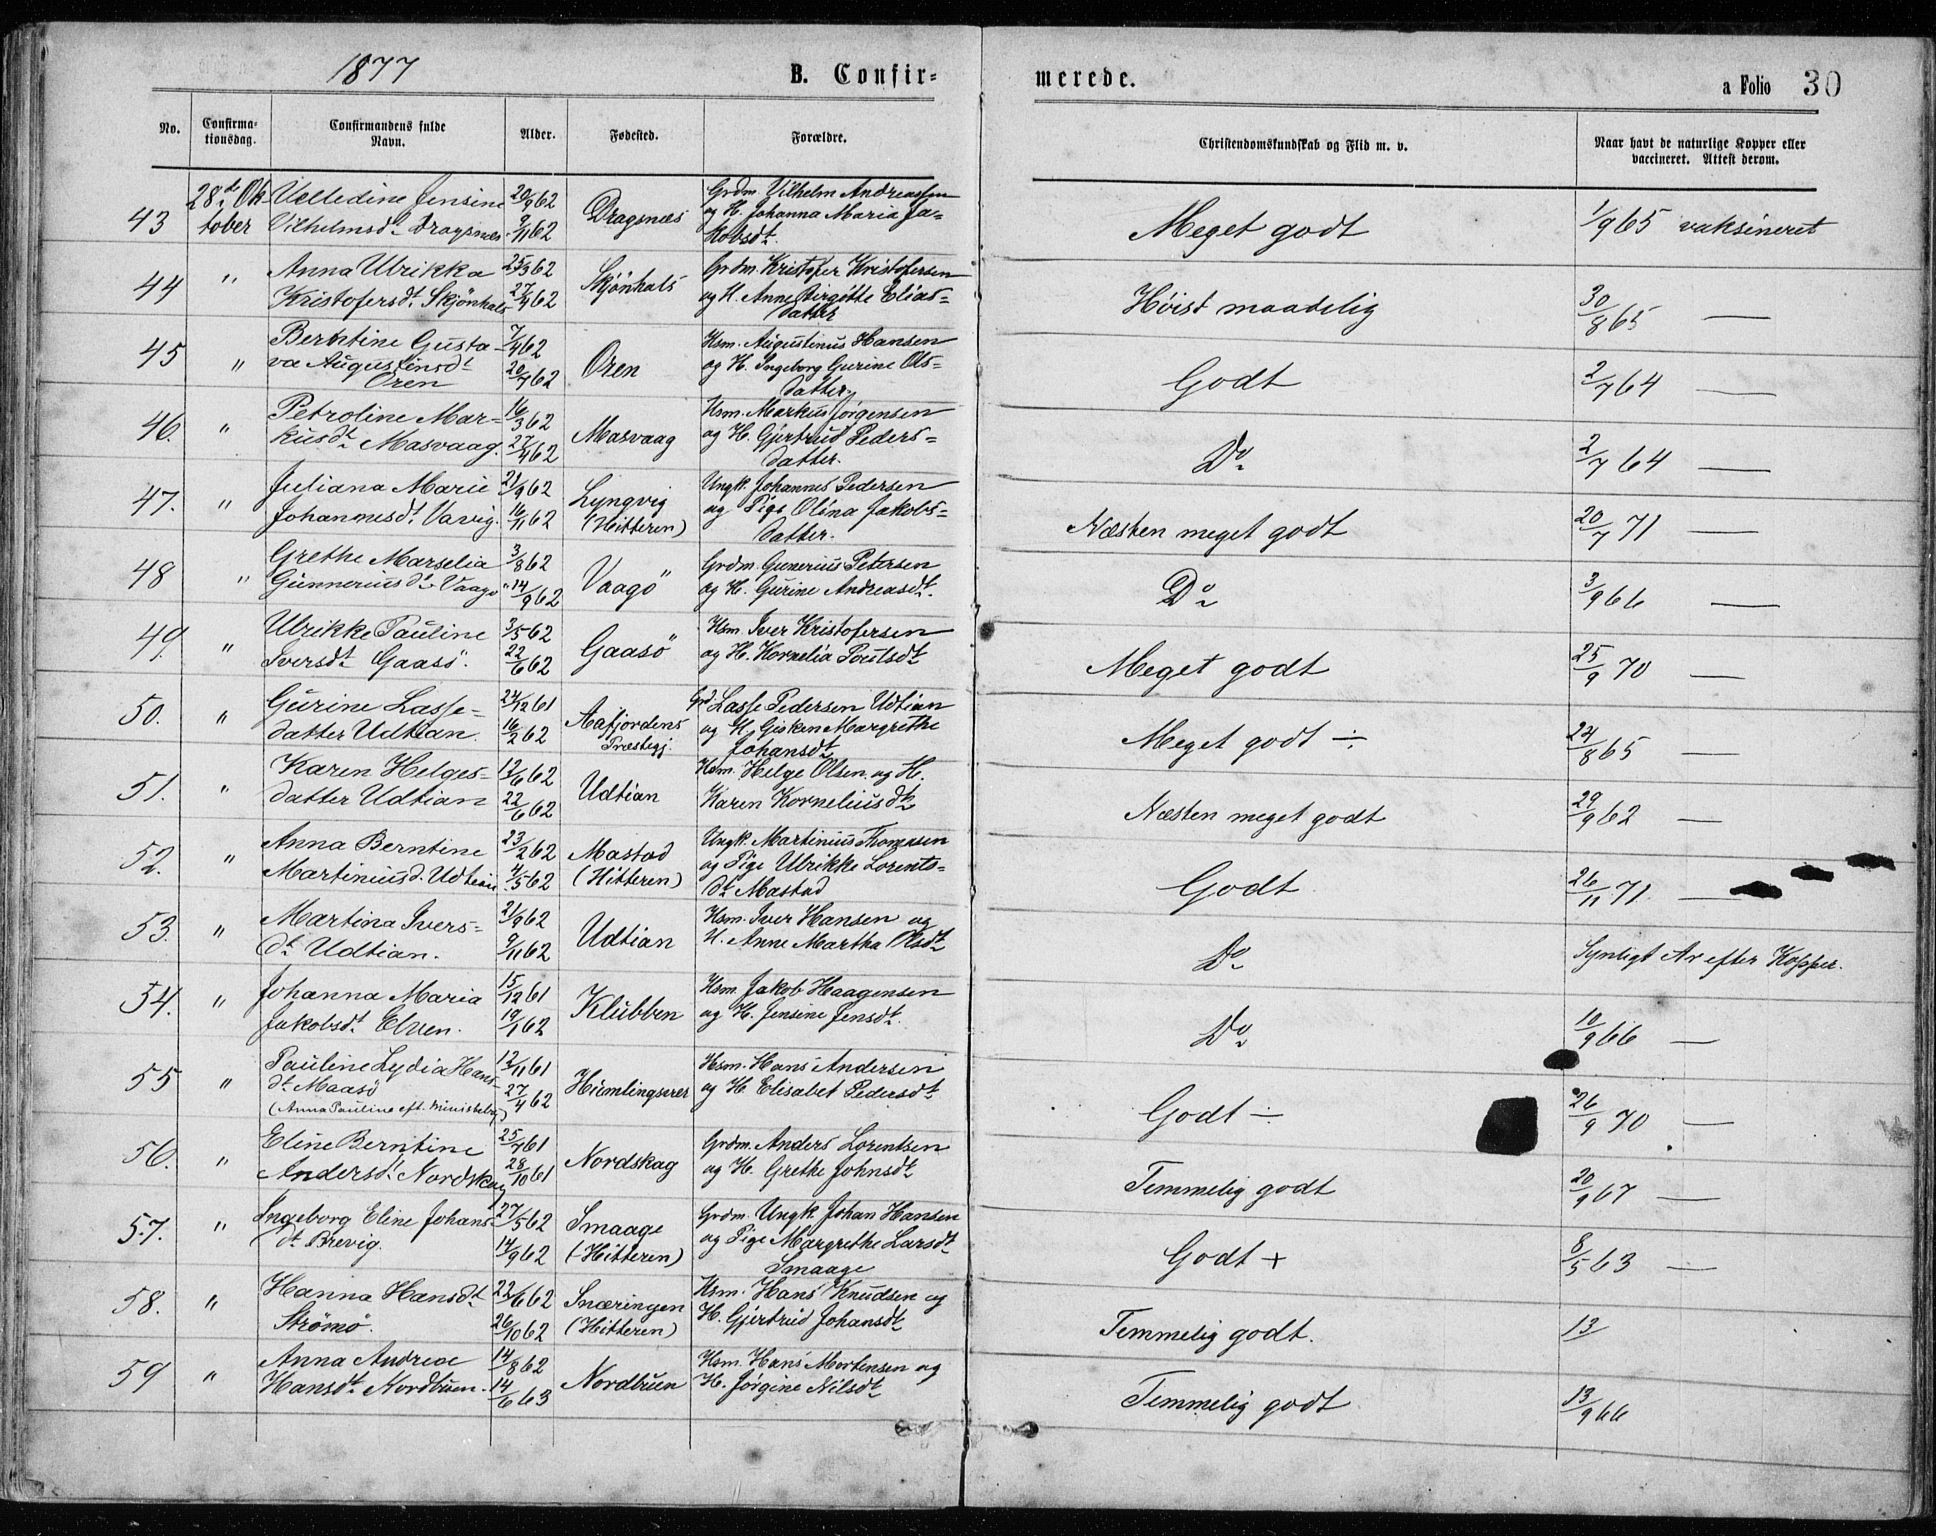 1877
B. Confir=
merede.
a Folio 30
No.
Confirma-
tionsdag.
Confirmandens fulde
Navn.
Alder.
Fødested.
Forældre.
Christendomskundskab og Flid m. v.
Naar havt de naturlige Kopper eller
vaccineret. Attest derom.
43 28d. Ok- Velledine Jensine 20/9 62 Dragsnæs Grdm. Vilhelm Andreassen
tober Vilhelmsdt. Dragsnæs 9/11 62 og H. Johanna Maria Ja=
kobsdt.
Meget godt 1/9 65 vaksineret
44 " Anna Ulrikka 25/3 62 Skjönhals Grdm. Kristofer Kristofersen
Kristofersdt. Skjönhals 27/4 62 og H. Anne Birgitte Elias=
datter
Höist maadelig 30/8 65 —
45 " Berntine Gusta- 7/4 62 Oren Hsm. Augustinus Hansen
va Augustinsdt. 20/7 62 og H. Ingeborg Gurine Ols=
Oren datter
Godt 2/7 64 —
46. " Petroline Mar= 16/3 62 Masvaag Hsm. Markus Jörgensen
kusdt. Masvaag. 27/4 62 og H. Gjertrud Peders=
datter.
Do. 2/7 64 —
47. " Juliana Marie 21/9 62 Lyngvig Ungk. Johannes Pedersen
Johannesdt. Vavig. 16/11 62 (Hitteren) og Pige Olina Jakobs=
datter.
Næsten meget godt 20/7 71 —
48 " Grethe Marselia 3/8 62 Vaagö Grdm. Gunerius Petersen
Gunneriusdt. Vaagö 14/9 62 og H. Gurine Andreasdt.
Do. 3/9 66 —
49. " Ulrikke Pauline 3/5 62 Gaasö Hsm. Iver Kristofersen
Iversdt. Gaasö. 22/6 62 og H. Kornelia Poulsdt.
Meget godt 25/9 70 —
50. " Gurine Lasse= 24/12 61 Aafjordens Grd. Lasse Pedersen Udtian
datter Udtian. 16/2 62 Præstegj. og H. Gisken Margrethe
Johansdt.
Meget godt ÷ 24/8 65 —
51. " Karen Helges= 12/6 62 Udtian Hsm. Helge Olsen og H.
datter Udtian 22/6 62 Karen Korneliusdt.
Næsten meget godt 29/9 62 —
52. " Anna Berntine 23/2 62 Mastad Ungk. Martinius Thomesen
Martiniusd. Udtian 4/5 62 (Hitteren) og Pige Ulrikke Lorents=
dt. Mastad
Godt 26/11 71. —
53. " Martina Ivers= 21/9 62 Udtian Hsm. Iver Hansen og
dt. Udtian. 9/11 62 H. Anne Martha Olsdt.
Do. Synligt Ar efter Kopper.
54. " Johanna Maria 15/12 61 Klubben Hsm. Jakob Haagensen
Jakobsdt. Elven. 19/1 62 og H. Jensine Jensdt.
Do. 10/9 66 —
55 " Pauline Lydia Hans- 12/11 61 Humlingsvær Hsm. Hans Andersen
dt. Maasö 27/4 62 og H. Elisabet Pedersdt.
(Anna Pauline eft.
Godt ÷ 26/9 70 —
56. " Eline Berntine 25/7 61 Nordskag Grdm. Anders Lorentsen
Andersdt. Nordskag 28/10 61 og H. Grethe Johnsdt.
Temmelig godt 20/9 67 —
57. " Ingeborg Eline Johans- 27/5 62 Smaage Grdm. Ungk. Johan Hansen
dt. Brevig. 14/9 62 (Hitteren) og Pige Margrethe Larsdt.
Smaage
Godt + 8/5 63 —
58. " Hanna Hansdt. 22/6 62 Snæringen Hsm. Hans Knudsen og
Strömö. 26/10 62 (Hitteren) H. Gjertrud Johansdt.
Temmelig godt. 13/
59 " Anna Andrea 14/8 62 Nordbuen Hsm. Hans Mortensen og
Hansdt. Nordbuen. 14/6 63 H. Jörgine Nilsdt.
Temmelig godt 13/9 66